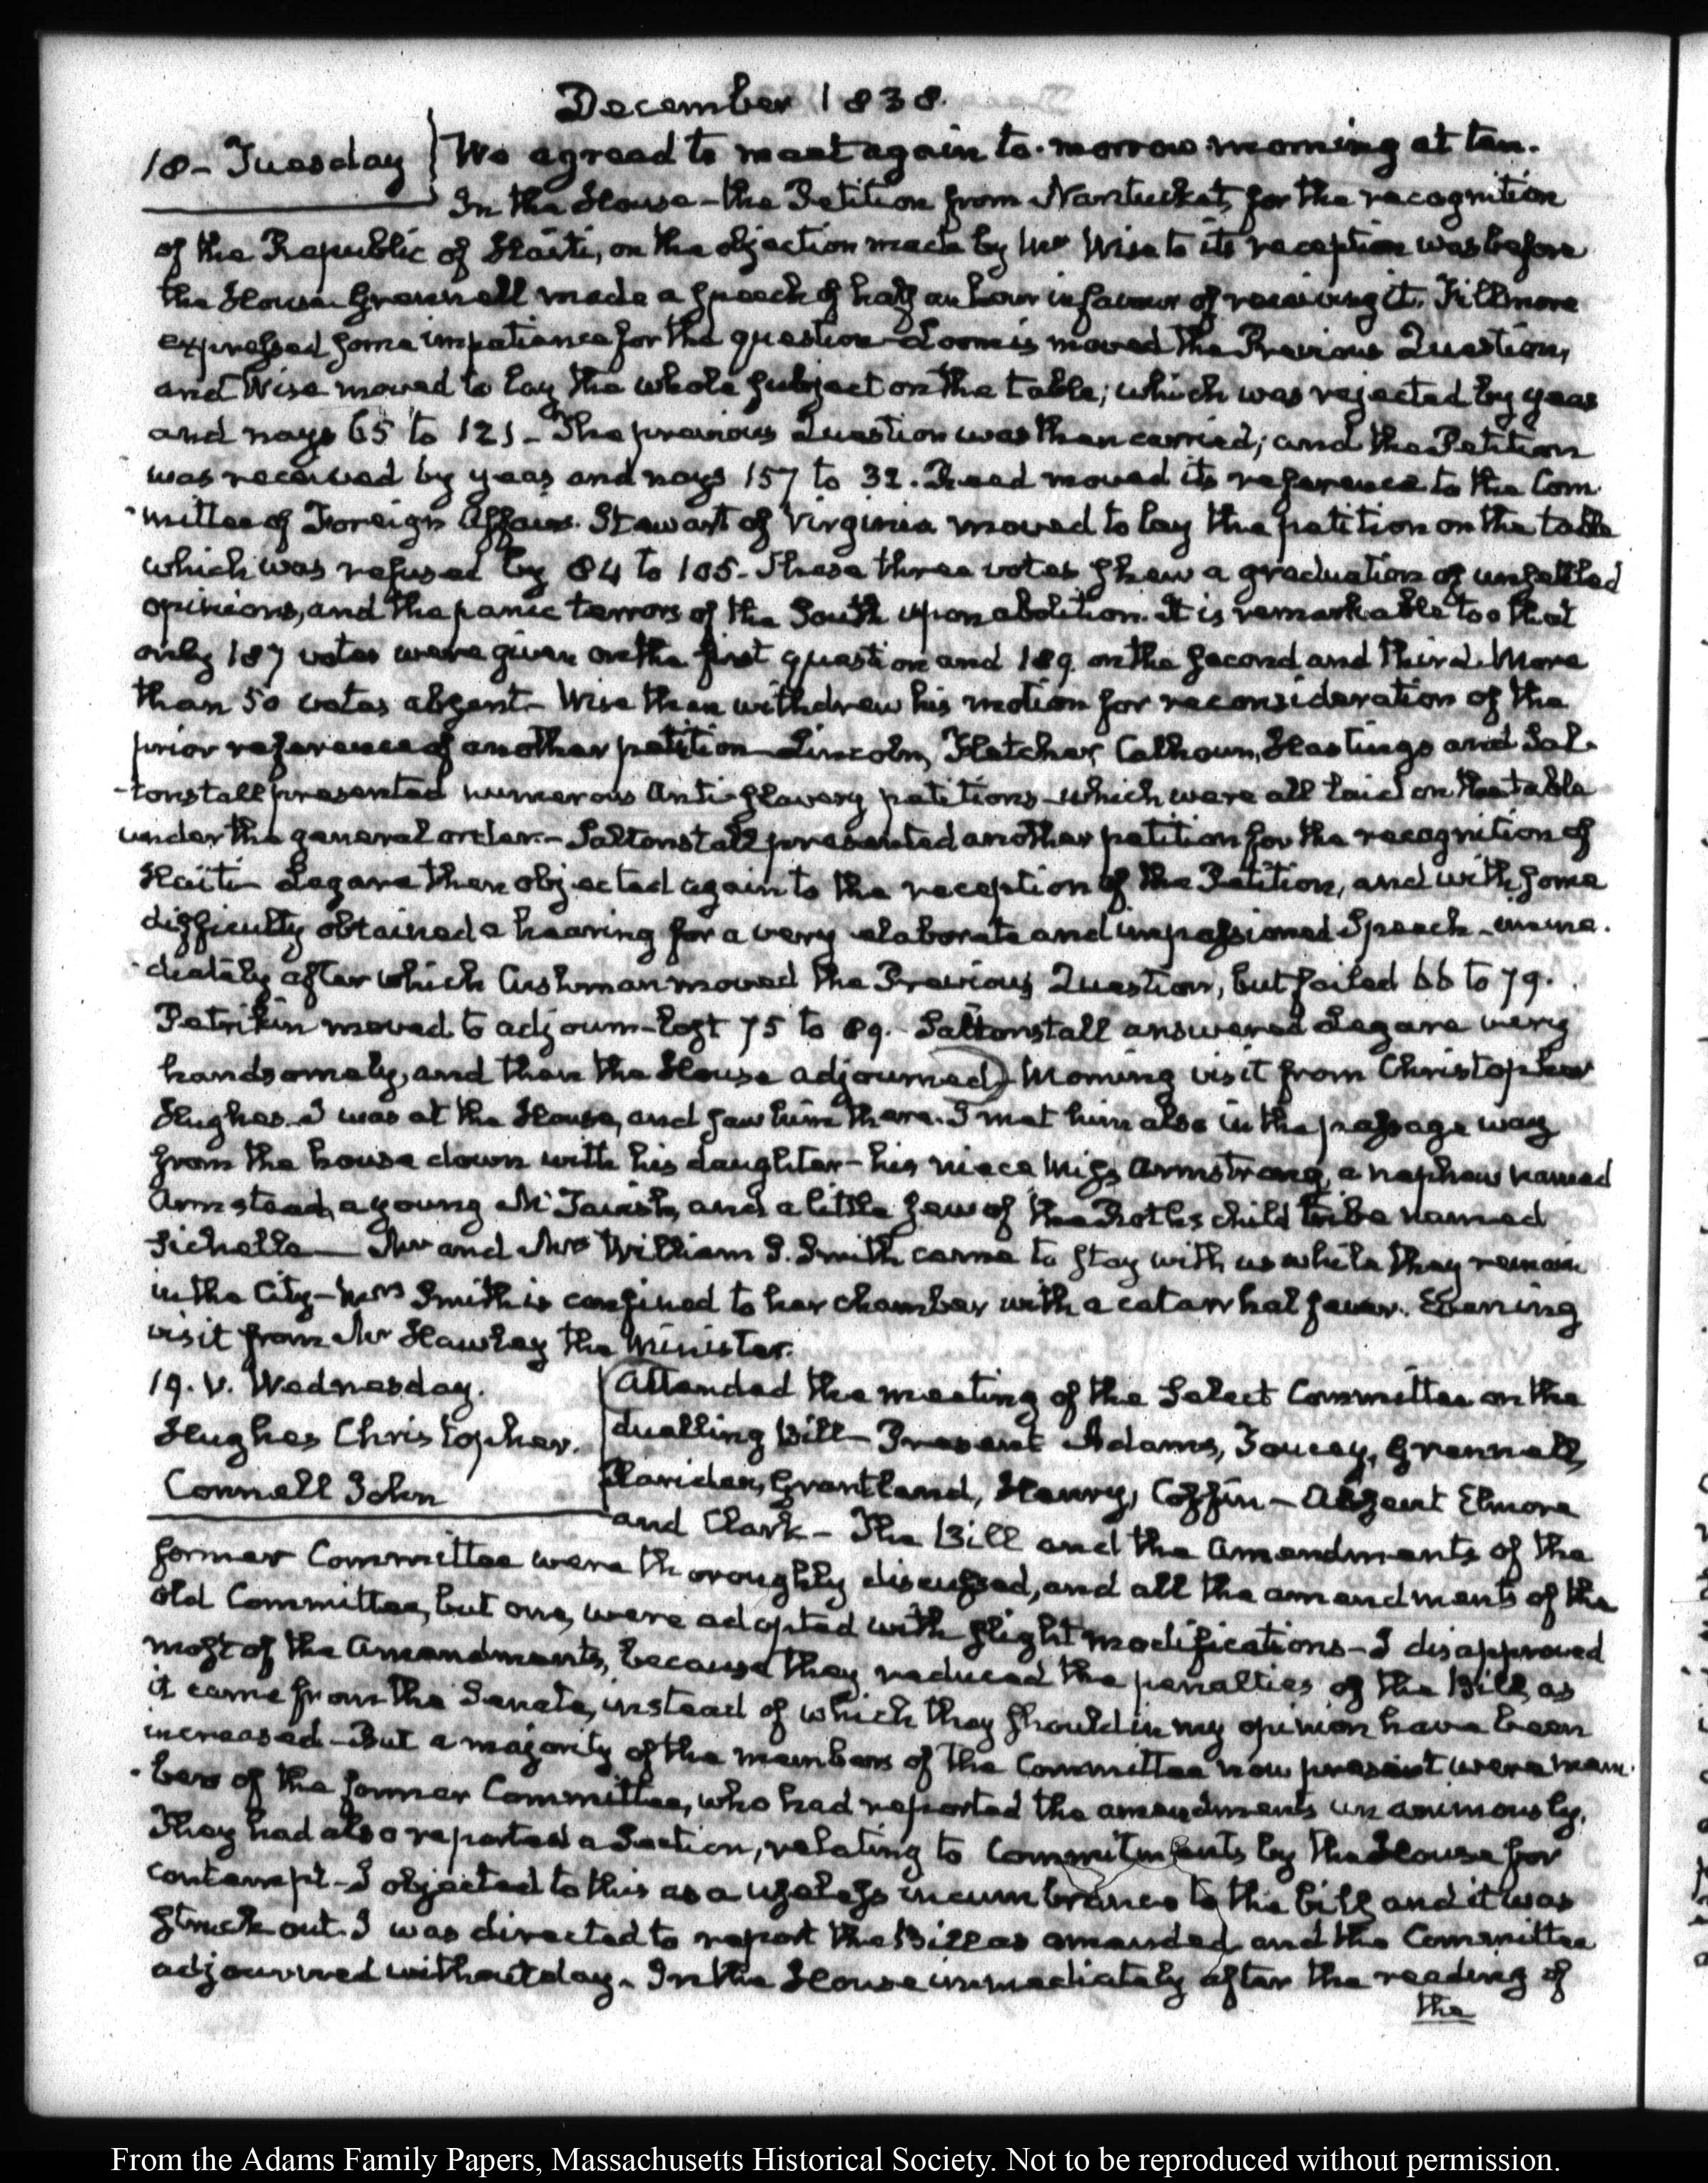 December 1838.
18 - Tuesday
We agreed to meet again to-morrow morning at ten.
In the House - the Petition from Nantucket, for the recognition
of the Republic of Haiti, on the objection made by Mr Wise to its reception was before
the House. Grennell made a speech of half an hour in favour of receiving it. Fillmore
expressed some impatience for the question - Loomis moved the Previous Question,
and Wise moved to lay the whole subject on the table; which was rejected by yeas
and nays 65 to 121 - The previous Question was then carried; and the Petition
was received by yeas and nays 157 to 32. Reed moved its reference to the Com
-mittee of Foreign Affairs. Stewart of Virginia moved to lay the petition on the table
which was refused by 84 to 105 - These three votes shew a graduation of unsettled
opinions, and the panic terrors of the South upon abolition. It is remarkable too that
only 187 votes were given on the first question and 189 on the second and third. More
than 50 votes absent - Wise then withdrew his motion for reconsideration of the
prior reference of another petition - Lincoln, Fletcher, Calhoun, Hastings and Sal-
-tonstall presented numerous Anti-slavery petitions - which were all laid on the table
under the general order. - Saltonstall presented another petition for the recognition of
Haiti - Legare then objected again to the reception of the Petition, and with some
difficulty obtained a hearing for a very elaborate and impassioned Speech - imme-
-diately after which Cushman moved the Previous Question, but failed 66 to 79.
Petrikin moved to adjourn - lost 75 to 89. - Saltonstall answered Legare very
handsomely, and then the House adjourned) Morning visit from Christopher
Hughes. I was at the House, and saw him there. I met him also in the passage way
from the house down with his daughter - his niece Miss Armstrong, a nephew named
Armstead, a young McTavish, and a little Jew of the Rothschild tribe named
Sichelle - Mr and Mrs William S. Smith came to stay with us while they remain
in the City - Mrs Smith is confined to her chamber with a catarrhal fever. Evening
visit from Mr Hawley the Minister.
19. V. Wednesday.
Hughes Christopher.
Connell John
(Attended the meeting of the Select Committee on the
duelling Bill - Present Adams, Toucey, Grennell,
Clowney, Grantland, Henry, Coffin - Absent Elmore
and Clark - The Bill and the Amendments of the
former Committee were thoroughly discussed, and all the amendments of the
old Committee, but one, were adopted with slight modifications - I disapproved
most of the Amendments, because they reduced the penalties of the Bill, as
it came from the Senate, instead of which they should in my opinion have been
increased - But a majority of the members of the Committee now present were mem-
-bers of the former Committee, who had reported the amendments unanimously.
They had also reported a Section, relating to Commitments by the House for
contempt - I objected to this as a useless incumbrance to the bill, and it was
struck out. I was directed to report the Bill as amended, and the Committee
adjourned without day. In the House immediately after the reading of
the
From the Adams Family Papers, Massachusetts Historical Society. Not to be reproduced without permission.